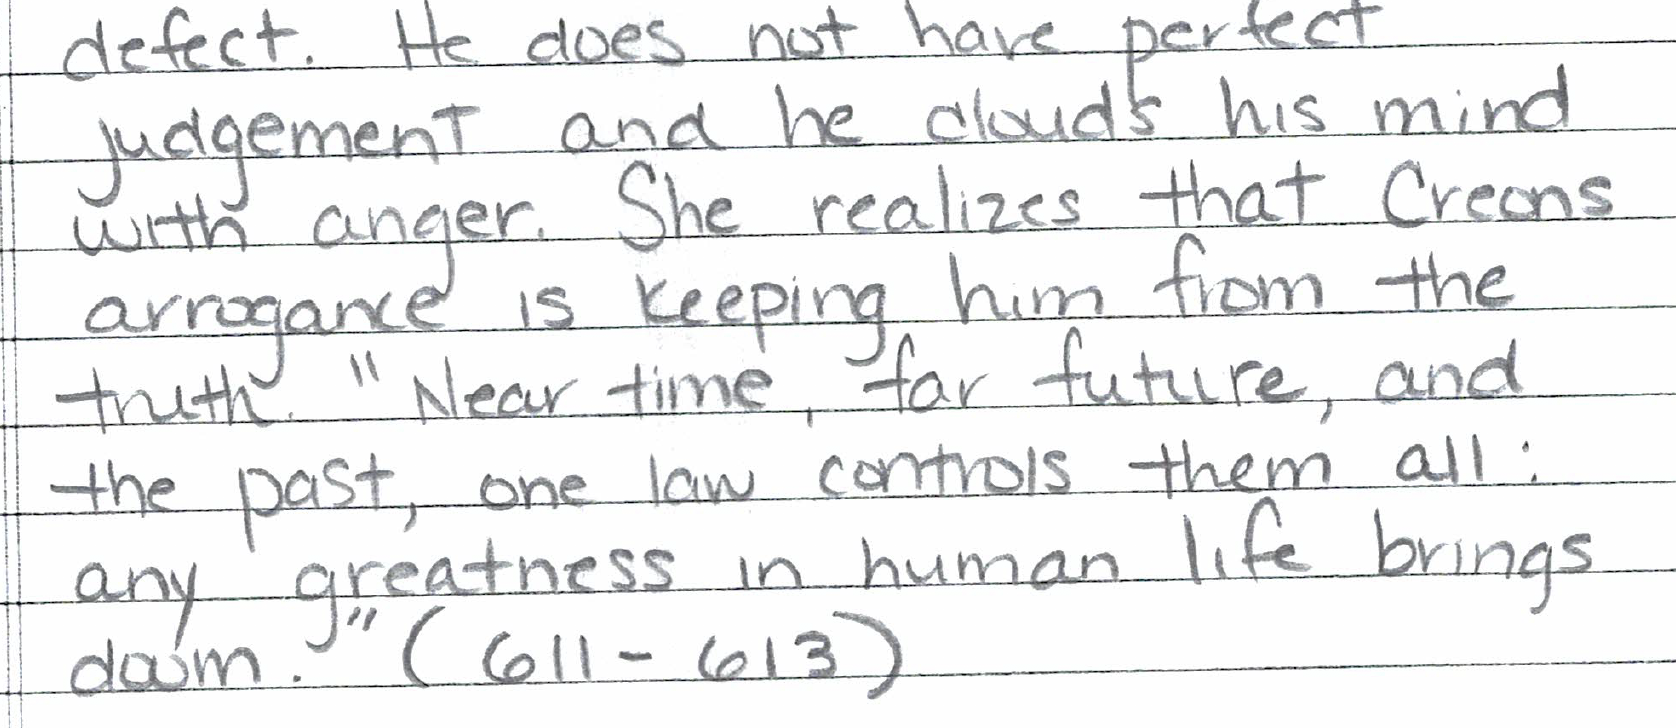 defect. He does not have perfect
judgement and he clouds his mind
with anger. She realizes that Creons
arrogance is keeping him from the
truth. "Near time, far future, and
the past, one law controls them all:
any greatness in human life brings
doom." (611-613)